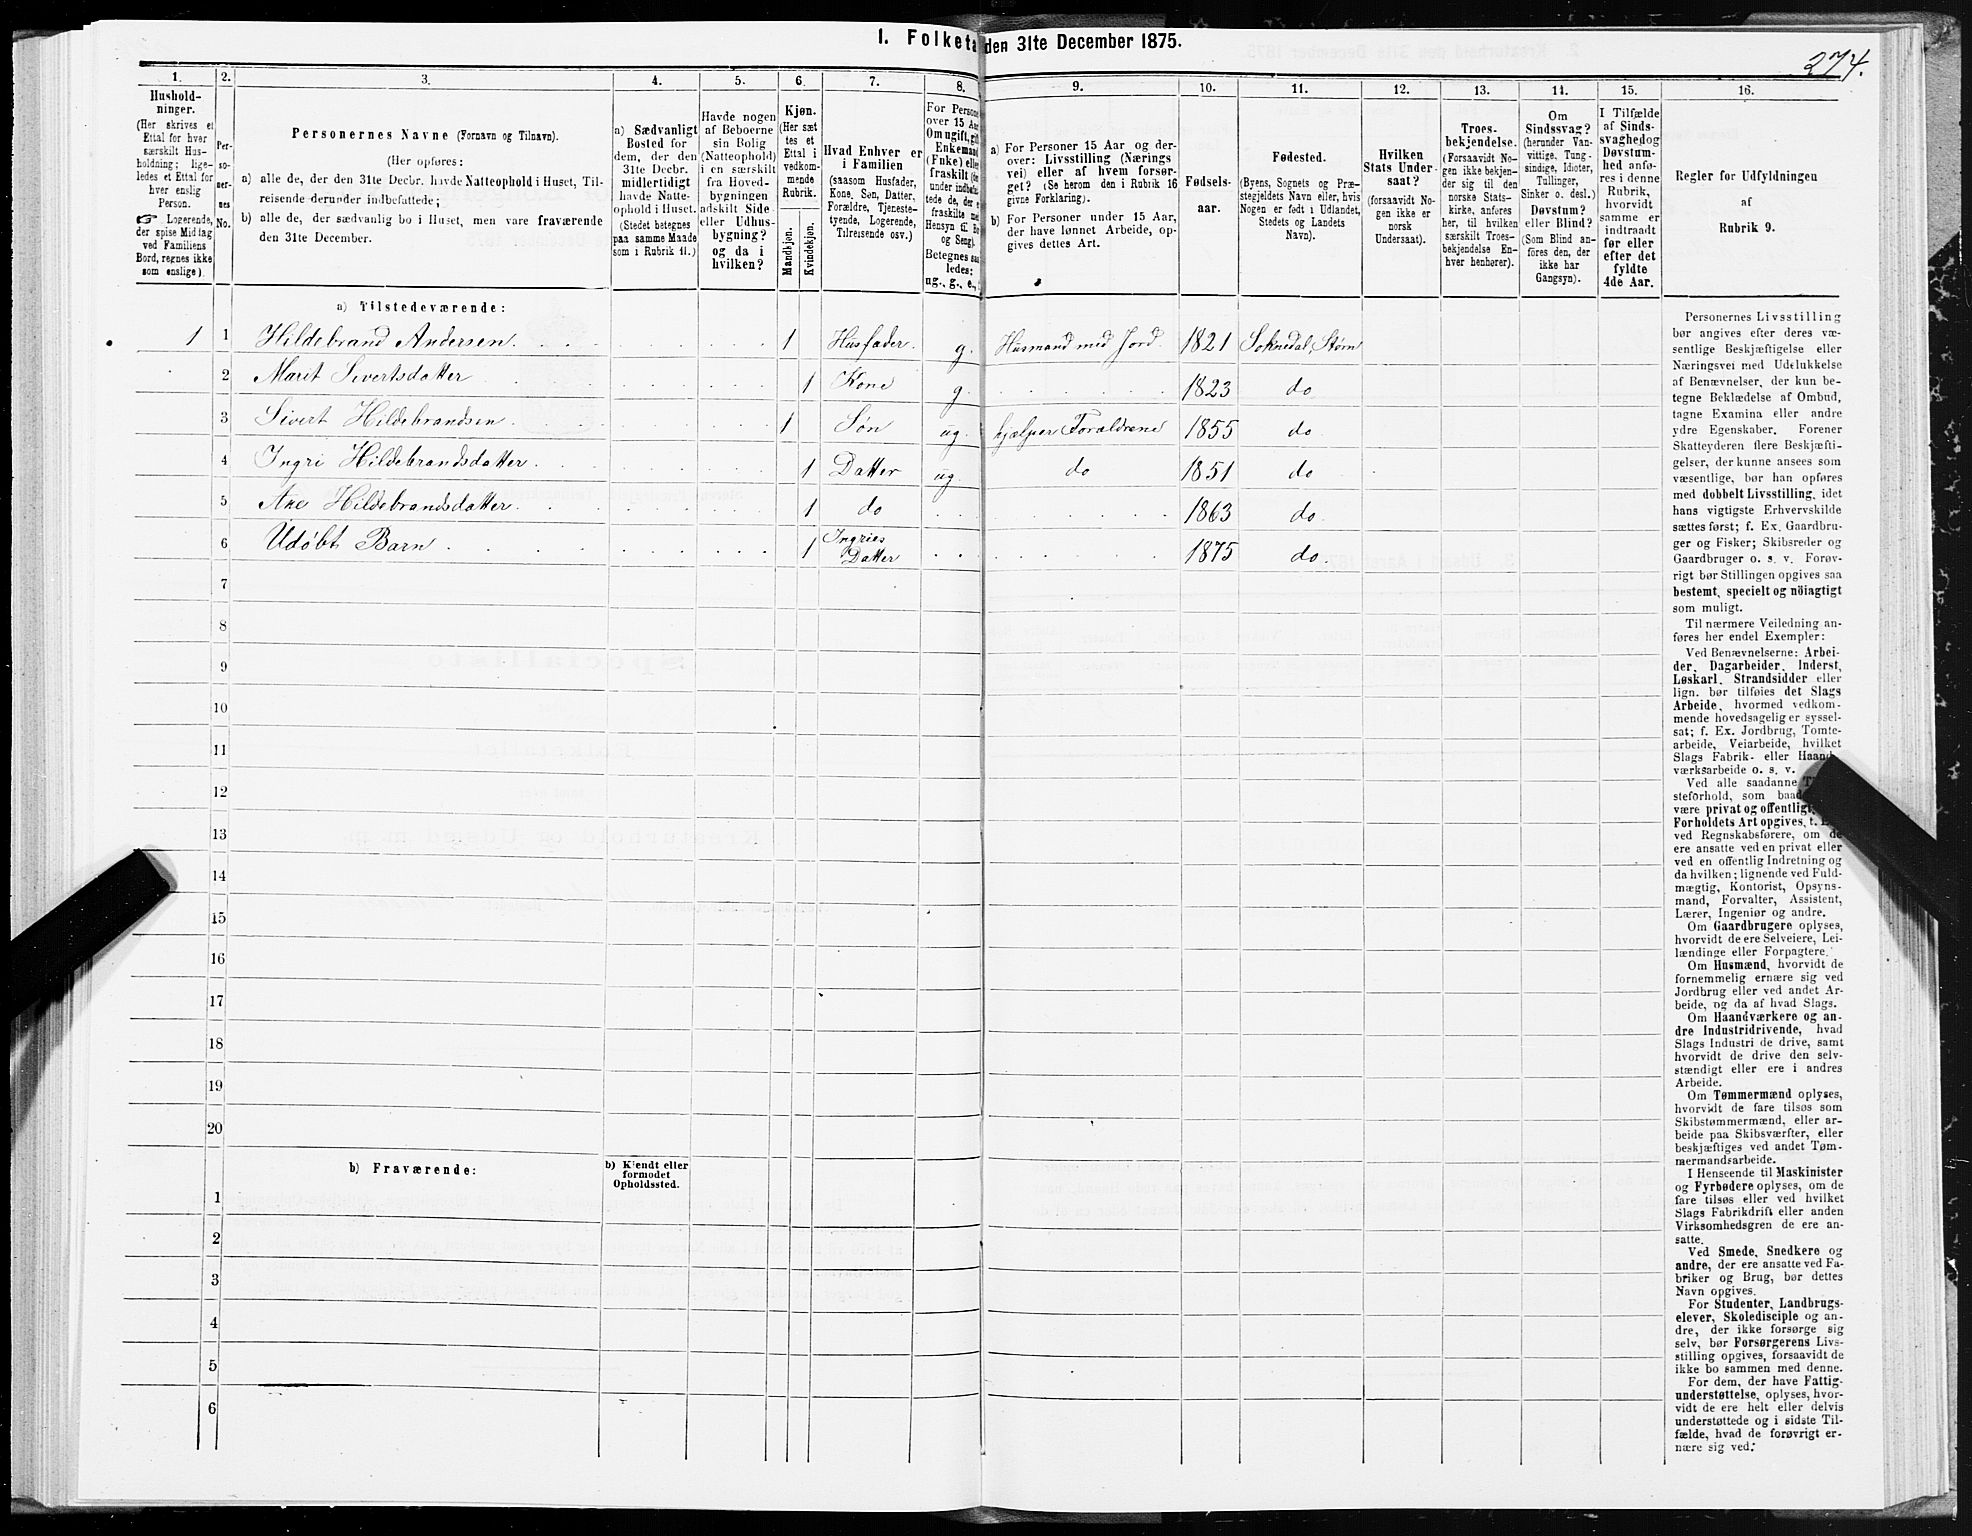 274.
1. Folketa den 31te December 1875.
1. 2. 3. 4. 5. 6. 7. 8. 9. 10. 11. 12. 13. 14. 15. 16.
Hushold-
ninger.
(Her skrives et
Ettal for hver
særskilt Hus-
holdning; lige-
ledes et Ettal for
hver enslig
Person.
☞ Logerende,
der spise Middag
ved Familiens
Bord, regnes ikke
som enslige).
Per-
so-
ner-
nes
No.
Personernes Navne (Fornavn og Tilnavn).
(Her opføres:
a) alle de, der den 31te Decbr. havde Natteophold i Huset, Til-
reisende derunder indbefattede;
b) alle de, der sædvanlig bo i Huset, men vare fraværende
den 31te December.
a) Sædvanligt
Bosted for
dem, der den
31te Decbr.
midlertidigt
havde Natte-
ophold i Huset.
(Stedet betegnes
paa samme Maade
som i Rubrik 11.)
Havde nogen
af Beboerne
sin Bolig
(Natteophold)
i en særskilt
fra Hoved-
bygningen
adskilt Side-
eller Udhus-
bygning?
og da i
hvilken?
Kjøn.
(Her sæt-
tes et
Ettal i
vedkom-
mende
Rubrik.
Mandkjøn.
Kvindekjøn.
Hvad Enhver er
i Familien
(saasom Husfader,
Kone, Søn, Datter,
Forældre, Tjeneste-
tyende, Logerende,
Tilreisende osv.)
For Persone
over 15 Aar
Om ugift, gift
Enkemand
(Enke) eller
fraskilt (de
under indbefat-
tede de, der e
fraskilte med
Hensyn til Bo
og Seng).
Betegnes saa
ledes:
ug., g., e.,
a) For Personer 15 Aar og der-
over: Livsstilling (Nærings
vei) eller af hvem forsør-
get? (Se herom den i Rubrik 16
givne Forklaring).
b) For Personer under 15 Aar,
der have lønnet Arbeide, op-
gives dettes Art.
Fødsels-
aar.
Fødested.
(Byens, Sognets og Præ-
stegjeldets Navn eller, hvis
Nogen er født i Udlandet,
Stedets og Landets
Navn).
Hvilken
Stats Under-
saat?
(forsaavidt No-
gen ikke er
norsk
Undersaat).
Troes-
bekjendelse.
(Forsaavidt No-
gen ikke bekjen-
der sig til den
norske Stats-
kirke, anføres
her, til hvilken
særskilt Troes-
bekjendelse En-
hver henhører).
Om
Sindssvag?
(herunder Van-
vittige, Tung-
sindige, Idioter,
Tullinger,
Sinker o. desl.)
Døvstum?
eller Blind?
(Som Blind an-
føres den, der
ikke har
Gangsyn).
I Tilfælde
af Sinds-
svaghed og
Døvstum-
hed anfø-
res i denne
Rubrik,
hvorvidt
samme er
indtraadt
før eller
efter det
fyldte
4de Aar.
Regler for Udfyldningen
af
Rubrik 9.
a) Tilstedeværende:
1 1 Hildebrand Andersen 1 Husfader. g. Husmand med Jord. 1821 Soknedal, Størn
2 Marit Sivertsdatter 1 Kone g. 1823 do
3 Sivert Hildebrandsen 1 Søn ug. hjælper Forældrene 1855 do
4 Ingri Hildebrandsdatter 1 Datter ug. do 1851 do
5 Ane Hildebrandsdatter 1 do 1863 do
6 Udøbt Barn 1 Ingries
Datter 1875 do
7
8
9
10
11
12
13
14
15
16
17
18
19
20
b) Fraværende:
b) Kjendt eller
formodet
Opholdssted.
1
2
3
4
5
6
Personernes Livsstilling
bør angives efter deres væ-
sentlige Beskjæftigelse eller
Næringsvei med Udelukkelse
af Benævnelser, der kun be-
tegne Beklædelse af Ombud,
tagne Examina eller andre
ydre Egenskaber. Forener
Skatteyderen flere Beskjæfti-
gelser, der kunne ansees som
væsentlige, bør han opføres
med dobbelt Livsstilling, idet
hans vigtigste Erhvervskilde
sættes først; f. Ex. Gaardbru-
ger og Fisker; Skibsreder og
Gaardbruger o. s. v. Forøv-
rigt bør Stillingen opgives saa
bestemt, specielt og nöiagtigt
som muligt.
Til nærmere Veiledning an-
føres her endel Exempler:
Ved Benævnelserne: Arbei-
der, Dagarbeider, Inderst,
Løskarl, Strandsidder eller
lign. bør tilføies det Slags
Arbeide, hvormed vedkom-
mende hovedsagelig er syssel-
sat; f. Ex. Jordbrug, Tomte-
arbeide, Veiarbeide, hvilket
Slags Fabrik- eller Haand-
værksarbeide o. s. v.
Ved alle saadanne
steforhold, som
være privat og offentligt,
Forholdets Art opgives, t.
ved Regnskabsførere, om de
ere ansatte ved en privat eller
ved en offentlig Indretning og
da hvilken; lignende ved Fuld-
mægtig, Kontorist, Opsyns-
mand, Forvalter, Assistent,
Lærer, Ingeniør og andre.
Om Gaardbrugere oplyses,
hvorvidt de ere Selveiere, Lei-
lændinge eller Forpagtere.
Om Husmænd, hvorvidt de
fornemmelig ernære sig ved
Jordbrug eller ved andet Ar-
beide, og da af hvad Slags.
Om Haandværkere og an-
dre Industridrivende, hvad
Slags Industri de drive, samt
hvorvidt de drive den selv-
stændigt eller ere i andres
Arbeide.
Om Tømmermænd oplyses,
hvorvidt de fare tilsøs som
Skibstømmermænd, eller ar-
beide paa Skibsværfter, eller
beskjæftiges ved andet Tøm-
mermandsarbeide.
I Henseende til Maskinister
og Fyrbødere oplyses, om de
fare tilsøs eller ved hvilket
Slags Fabrikdrift eller anden
Virksomhedsgren de ere an-
satte.
Ved Smede, Snedkere og
andre, der ere ansatte ved Fa-
briker og Brug, bør dettes
Navn opgives.
For Studenter, Landbrugs-
elever, Skoledisciple og an-
dre, der ikke forsørge sig
selv, bør Forsørgerens Livs-
stilling opgives, forsaavidt de
ikke bo sammen med denne.
For dem, der have Fattig-
understøttelse, oplyses, hvor-
vidt de ere helt eller delvis
understøttede og i sidste Til-
fælde, hvad de forøvrigt er-
nære sig ved.